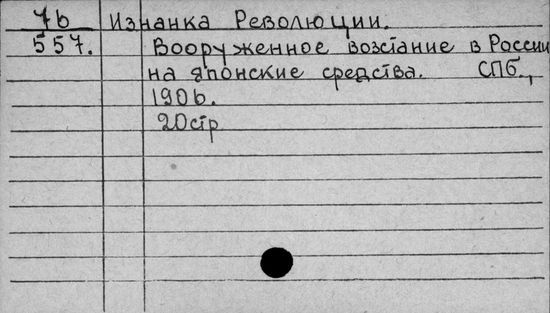 7b Изнанка Революции.
557. Вооруженное возстание в России
на японские средства. СПб.,
1906.
20стр